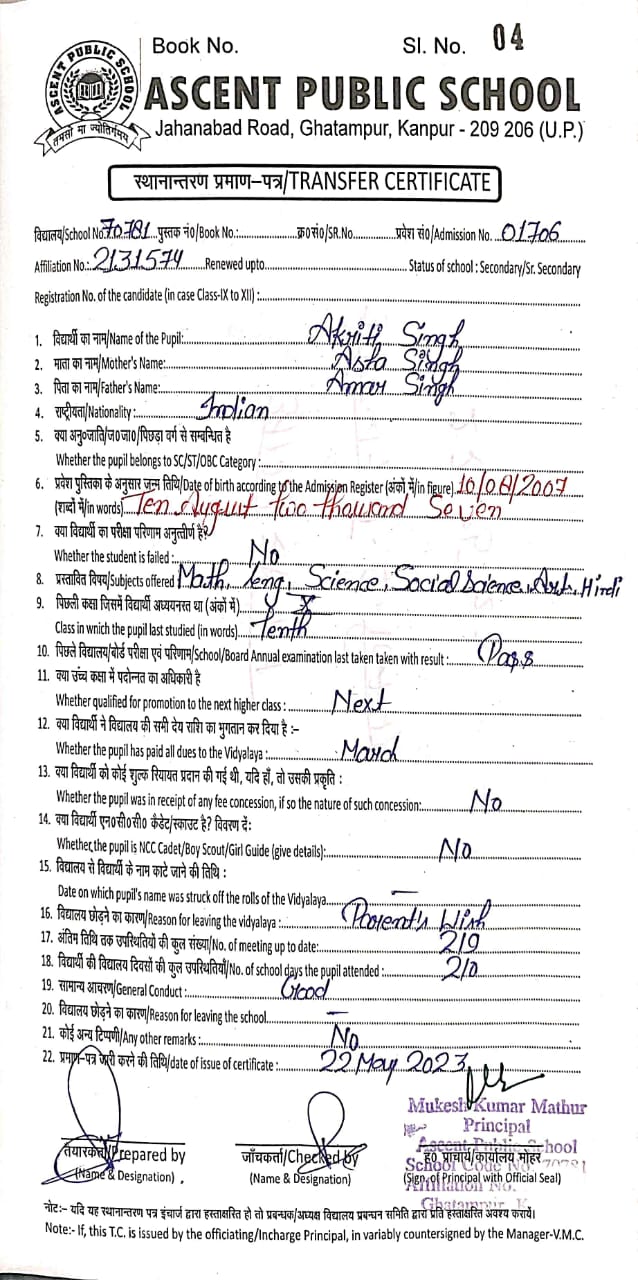 Book No. Sl. No. 04
ASCENT PUBLIC SCHOOL
तमसो मा ज्योतिर्गमय
ASCENT PUBLIC SCHOOL
Jahanabad Road, Ghatampur, Kanpur - 209 206 (U.P.)
स्थानान्तरण प्रमाण-पत्र/TRANSFER CERTIFICATE
विद्यालय/School No. 70781 पुस्तक नं०/Book No.: क्र०सं०/SR.No. प्रवेश सं०/Admission No. 01706
Affiliation No.: 2131574 Renewed upto Status of school : Secondary/Sr. Secondary
Registration No. of the candidate (in case Class-IX to XII) :
1. विद्यार्थी का नाम/Name of the Pupil: Akriti Singh
2. माता का नाम/Mother's Name: Asta Singh
3. पिता का नाम/Father's Name: Amar Singh
4. राष्ट्रीयता/Nationality : Indian
5. क्या अनु०जाति/ज०जा०/पिछड़ा वर्ग से सम्बन्धित है
Whether the pupil belongs to SC/ST/OBC Category :
6. प्रवेश पुस्तिका के अनुसार जन्म तिथि/Date of birth according to the Admission Register (अंकों में/in figure) 10/08/2007
(शब्दों में/in words) Ten August two thousand Seven
7. क्या विद्यार्थी का परीक्षा परिणाम अनुत्तीर्ण है?
Whether the student is failed : No
8. प्रस्तावित विषय/Subjects offered Math, eng, Science, Social Science, Art, Hindi
9. पिछली कक्षा जिसमें विद्यार्थी अध्ययनरत था (अंकों में) X
Class in wnich the pupil last studied (in words) Tenth
10. पिछले विद्यालय/बोर्ड परीक्षा एवं परिणाम/School/Board Annual examination last taken taken with result : Pass
11. क्या उच्च कक्षा में पदोन्नत का अधिकारी है
Whether qualified for promotion to the next higher class : Next
12. क्या विद्यार्थी ने विद्यालय की सभी देय राशि का भुगतान कर दिया है :-
Whether the pupil has paid all dues to the Vidyalaya : March
13. क्या विद्यार्थी को कोई शुल्क रियायत प्रदान की गई थी, यदि हाँ, तो उसकी प्रकृति :
Whether the pupil was in receipt of any fee concession, if so the nature of such concession: No
14. क्या विद्यार्थी एन०सी०सी० कैडेट/स्काउट है? विवरण दें:
Whether,the pupil is NCC Cadet/Boy Scout/Girl Guide (give details): No
15. विद्यालय से विद्यार्थी के नाम काटे जाने की तिथि :
Date on which pupil's name was struck off the rolls of the Vidyalaya —
16. विद्यालय छोड़ने का कारण/Reason for leaving the vidyalaya : Parent's Wish
17. अंतिम तिथि तक उपस्थितियों की कुल संख्या/No. of meeting up to date: 219
18. विद्यार्थी की विद्यालय दिवसों की कुल उपस्थितियाँ/No. of school days the pupil attended : 210
19. सामान्य आचरण/General Conduct : Good
20. विद्यालय छोड़ने का कारण/Reason for leaving the school —
21. कोई अन्य टिप्पणी/Any other remarks : No
22. प्रमाण-पत्र जारी करने की तिथि/date of issue of certificate : 22 May 2023
Mukesh Kumar Mathur
Principal
Ascent Public School
School Code No. 70781
Affiliation No.
Ghatampur, K
तैयारकर्ता/Prepared by जाँचकर्ता/Checked by ह० प्राचार्य/कार्यालय मोहर
(Name & Designation) . (Name & Designation) (Sign. of Principal with Official Seal)
नोट:- यदि यह स्थानान्तरण पत्र इंचार्ज द्वारा हस्ताक्षरित हो तो प्रबन्धक/अध्यक्ष विद्यालय प्रबन्धन समिति द्वारा प्रति हस्ताक्षरित अवश्य करायें।
Note:- If, this T.C. is issued by the officiating/Incharge Principal, in variably countersigned by the Manager-V.M.C.